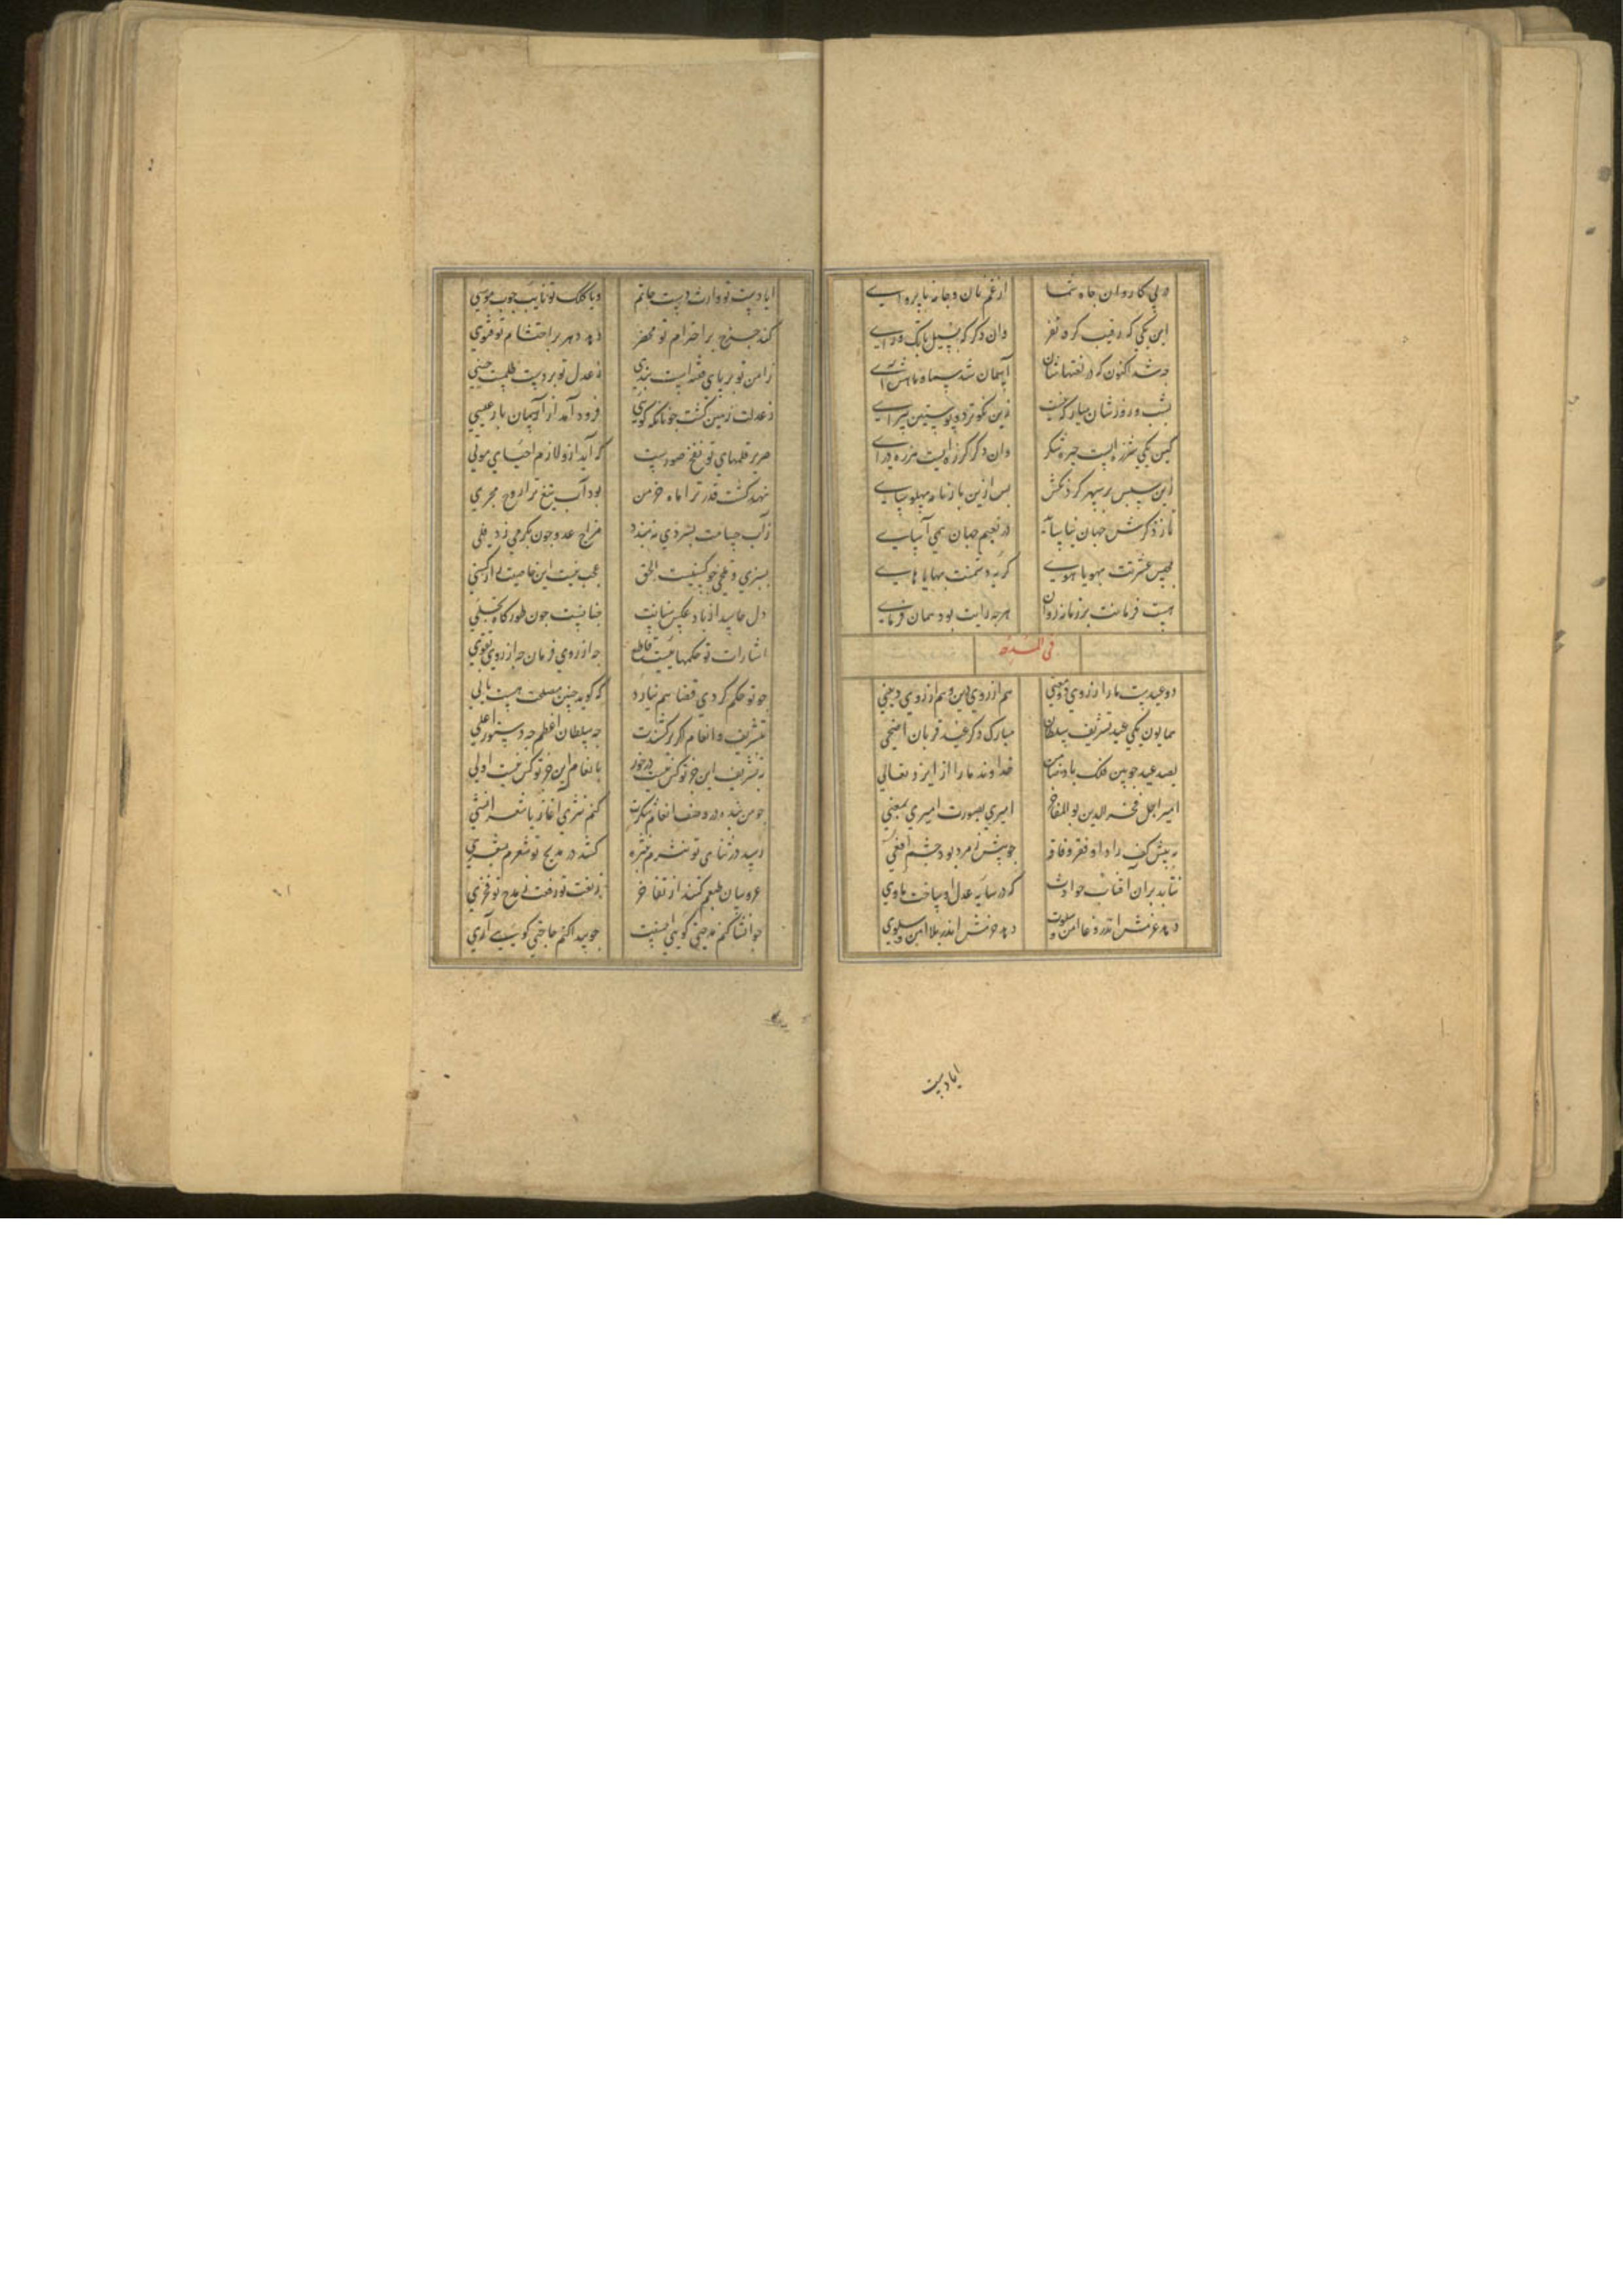 در پی کاروان جاه شما از غم نان و جامه ناپروایی
این یکی که رقیب کرد نفر وان دکر که بسیل بانک درای
چه شد اکنون که در لغتهاشان آسمان شد سما و ماهش آی
شب و روزشان مبارک نیست زین نکوتر دو پوستین پیرای
کین یکی شرزه‌ایست چیره شکر وان دکر کرزه‌ایست هرزه درای
زین سپس بر سپهر کردنکش بس ازین با زمانه پهلو سای
تا ز ذکرش جهان نیاساید در نعیم جهان همی آسای
مجلس عشرتت بهویاهوی کریه دشمنت بهایاهای
هست فرمانت بر زمانه روان هرچه رایت بود همان فرمای
فی المدح
دو عیدست ما را ز روی دو معنی هم از روی دین و هم از روی دنیی
همایون یکی عید تشریف سلطان مبارک دکر عید قربان اضحی
بصد عید چونین فلک باد ضامن خداوند ما را از ایزد تعالی
امیر اجل فخر الدین بو المفاخر امیری بصورت امیری بمعنی
به پیش کف راد او فقر و فاقه چو پیش زمرد بود چشم افعی
نتابد بران آفتاب حوادث که در سایه عدل او ساخت ماوی
دهد عزمش اندر وغا امن و سلوت دهد حزمش اندر بلا امن و سلوی
ایا دست
ایا دست تو وارث دست حاتم ویا کلک تو نایب چوب موسی
کند چرخ بر احترام تو محضر دهد دهر بر احتشام تو فتوی
ز امن تو بر پای فتنه‌ایست بندی ز عدل تو بر دست ظلمست حنی
ز عدلت زمین کشت چونانکه کویی فرود آمد از آسمان باز عیسی
صریر قلمهای تو نفخ صورست که آید ازو لازم احیای موتی
نهد کشت قدر ترا ماه خرمن بود آب تیغ ترا روح مجری
ز آب حسامت بسردی ببندد مزاج عدو چون بکرمی ز دفلی
بسبزی و تلخی چو کسنیست الحق عجب نیست این خاصیت از کسنی
دل حاسد از باد عکس سنانت چنانست چون طور کاه تجلی
اشارات تو حکمهاییست قاطع چه از روی فرمان چه از روی تقوی
چو تو حکم کردی قضا هم نیارد که کوید چنین مصلحت هست یا نی
بتشریف و انعام اکر برکشندت چه سلطان اعظم چه دستور اعلی
به تشریف این جز تو کس نیست در خور بانعام این جز تو کس نیست اولی
چو من بنده در وصف انعام و شکرت کنم نثری آغاز یا شعر انشی
رسد در ثنای تو نثرم بنثره کشد در مدیح تو شعرم بشعری
عروسان طبعم کنند از تفاخر ز نعت تو زینت ز مدح تو فخری
چو انشا کنم مدحتی کویی احسنت چو پیدا کنم حاجتی کویی آری